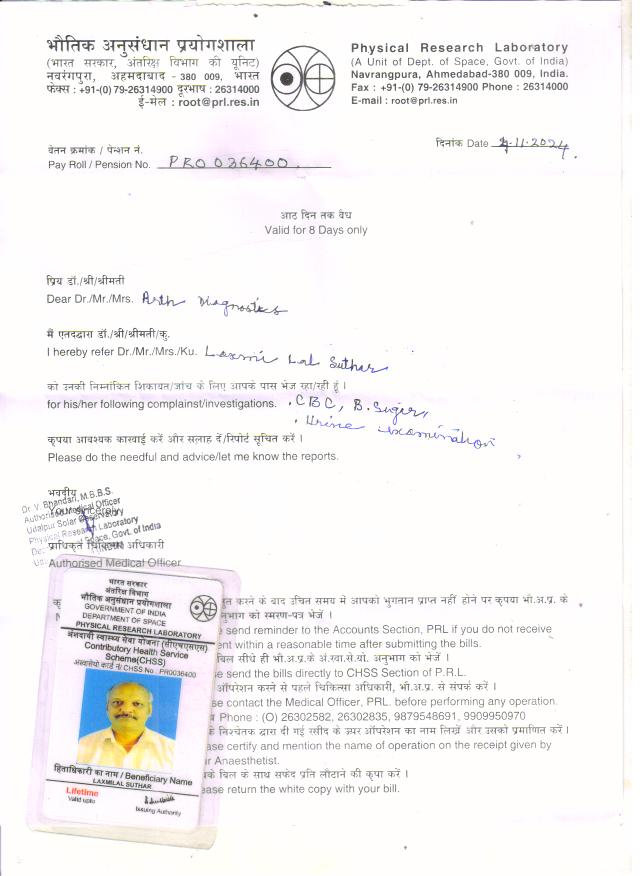 भौतिक अनुसंधान प्रयोगशाला
(भारत सरकार, अंतरिक्ष विभाग की यूनिट)
नवरंगपुरा, अहमदाबाद - 380 009, भारत
फेक्स : +91-(0) 79-26314900 दूरभाष : 26314000
ई-मेल : root@prl.res.in
Physical Research Laboratory
(A Unit of Dept. of Space, Govt. of India)
Navrangpura, Ahmedabad-380 009, India.
Fax : +91-(0) 79-26314900 Phone : 26314000
E-mail : root@prl.res.in
वेतन क्रमांक / पेन्शन नं.
Pay Roll / Pension No. PRO 036400
दिनांक Date 4-11-2024
आठ दिन तक वैध
Valid for 8 Days only
प्रिय डॉ./श्री/श्रीमती
Dear Dr./Mr./Mrs. Arth Diagnostics
मैं एतदद्वारा डॉ./श्री/श्रीमती/कु.
I hereby refer Dr./Mr./Mrs./Ku. Laxmi Lal Suthar
को उनकी निम्नांकित शिकायत/जांच के लिए आपके पास भेज रहा/रही हूं ।
for his/her following complainst/investigations. CBC, B. Sugar,
Urine examination
कृपया आवश्यक कारवाई करें और सलाह दें/रिपोर्ट सूचित करें ।
Please do the needful and advice/let me know the reports.
भवदीय
Dr. V. Bhandari, M.B.B.S.
Authorised Medical Officer
Udaipur Solar Observatory
Physical Research Laboratory
Space, Govt. of India
प्राधिकृत चिकित्सा अधिकारी
Authorised Medical Officer
भारत सरकार
अंतरिक्ष विभाग
भौतिक अनुसंधान प्रयोगशाला
GOVERNMENT OF INDIA
DEPARTMENT OF SPACE
PHYSICAL RESEARCH LABORATORY
अंशदायी स्वास्थ्य सेवा योजना (सीएचएसएस)
Contributory Health Service
Scheme(CHSS)
CHSS No : PR0036400
हिताधिकारी का नाम / Beneficiary Name
LAXMILAL SUTHAR
Lifetime
Valid upto
Issuing Authority
करने के बाद उचित समय में आपको भुगतान प्राप्त नहीं होने पर कृपया भौ.अ.प्र. के
अनुभाग को स्मरण-पत्र भेजें ।
send reminder to the Accounts Section, PRL if you do not receive
within a reasonable time after submitting the bills.
बिल सीधे ही भौ.अ.प्र.के अं.स्वा.से.यो. अनुभाग को भेजें ।
send the bills directly to CHSS Section of P.R.L.
ऑपरेशन करने से पहले चिकित्सा अधिकारी, भौ.अ.प्र. से संपर्क करें ।
contact the Medical Officer, PRL. before performing any operation.
Phone : (O) 26302582, 26302835, 9879548691, 9909950970
के निश्चेतक द्वारा दी गई रसीद के उपर ऑपरेशन का नाम लिखें और उसको प्रमाणित करें ।
certify and mention the name of operation on the receipt given by
Anaesthetist.
के बिल के साथ सफेद प्रति लौटाने की कृपा करें ।
return the white copy with your bill.